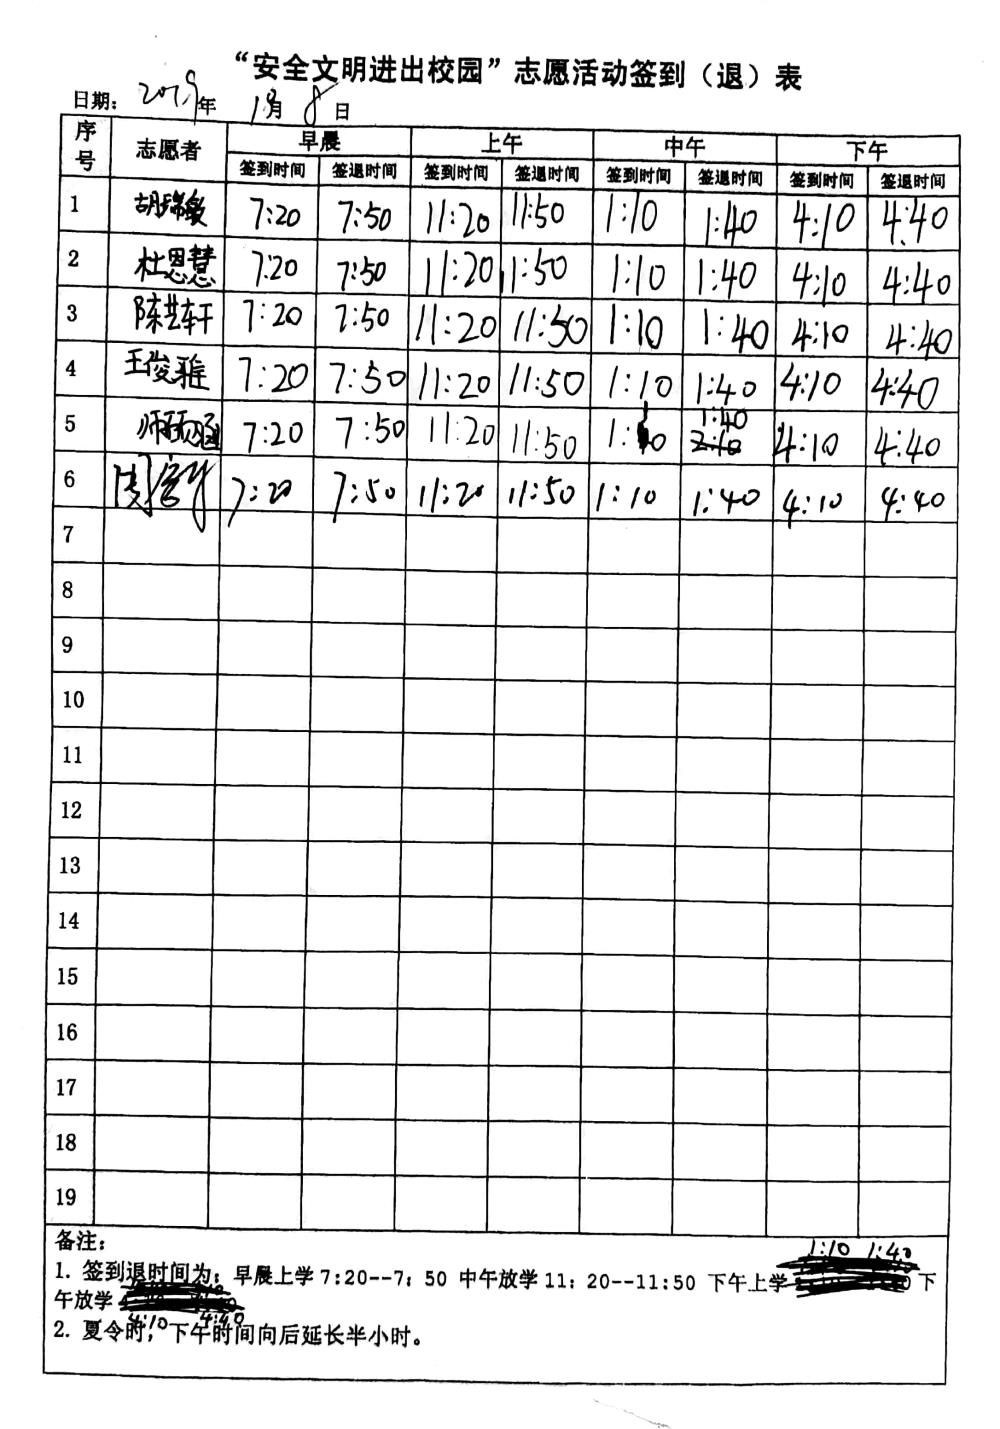 “安全文明进出校园”志愿活动签到（退）表
日期：2019年 1月 8日
序号 志愿者 早晨 上午 中午 下午
签到时间 签退时间 签到时间 签退时间 签到时间 签退时间 签到时间 签退时间
1 胡瑞敏 7:20 7:50 11:20 11:50 1:10 1:40 4:10 4:40
2 杜思慧 7:20 7:50 11:20 11:50 1:10 1:40 4:10 4:40
3 陈芸轩 7:20 7:50 11:20 11:50 1:10 1:40 4:10 4:40
4 王俊雅 7:20 7:50 11:20 11:50 1:10 1:40 4:10 4:40
5 7:20 7:50 11:20 11:50 1:10 1:40 4:10 4:40
6 7:20 7:50 11:20 11:50 1:10 1:40 4:10 4:40
7
8
9
10
11
12
13
14
15
16
17
18
19
备注：
1. 签到退时间为：早晨上学 7:20--7：50 中午放学 11：20--11:50 下午上学 1:10 1:40 下
午放学 4:10 4:40
2. 夏令时，下午时间向后延长半小时。